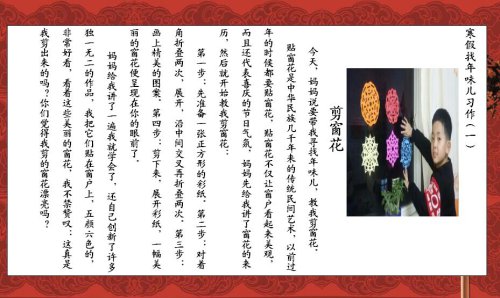 寒假找年味儿习作（一）
剪窗花
今天，妈妈说要带我寻找年味儿，教我剪窗花，
贴窗花是中华民族几千年来的传统民间艺术，以前过
年的时候都要贴窗花，贴窗花不仅让窗户看起来美观，
而且还代表喜庆的节日气氛，妈妈先给我讲了窗花的来
历，然后就开始教我剪窗花：
第一步：先准备一张正方形的彩纸，第二步：对着
角折叠两次，展开，沿中间交叉再折叠两次，第三步：
画上精美的图案，第四步：剪下来，展开彩纸，一幅美
丽的窗花便呈现在你的眼前了。
妈妈给我讲了一遍我就学会了，还自己创新了许多
独一无二的作品，我把它们贴在窗户上，五颜六色的，
非常好看，看着这些美丽的窗花，我不禁赞叹：这真是
我剪出来的吗？你们觉得我剪的窗花漂亮吗？